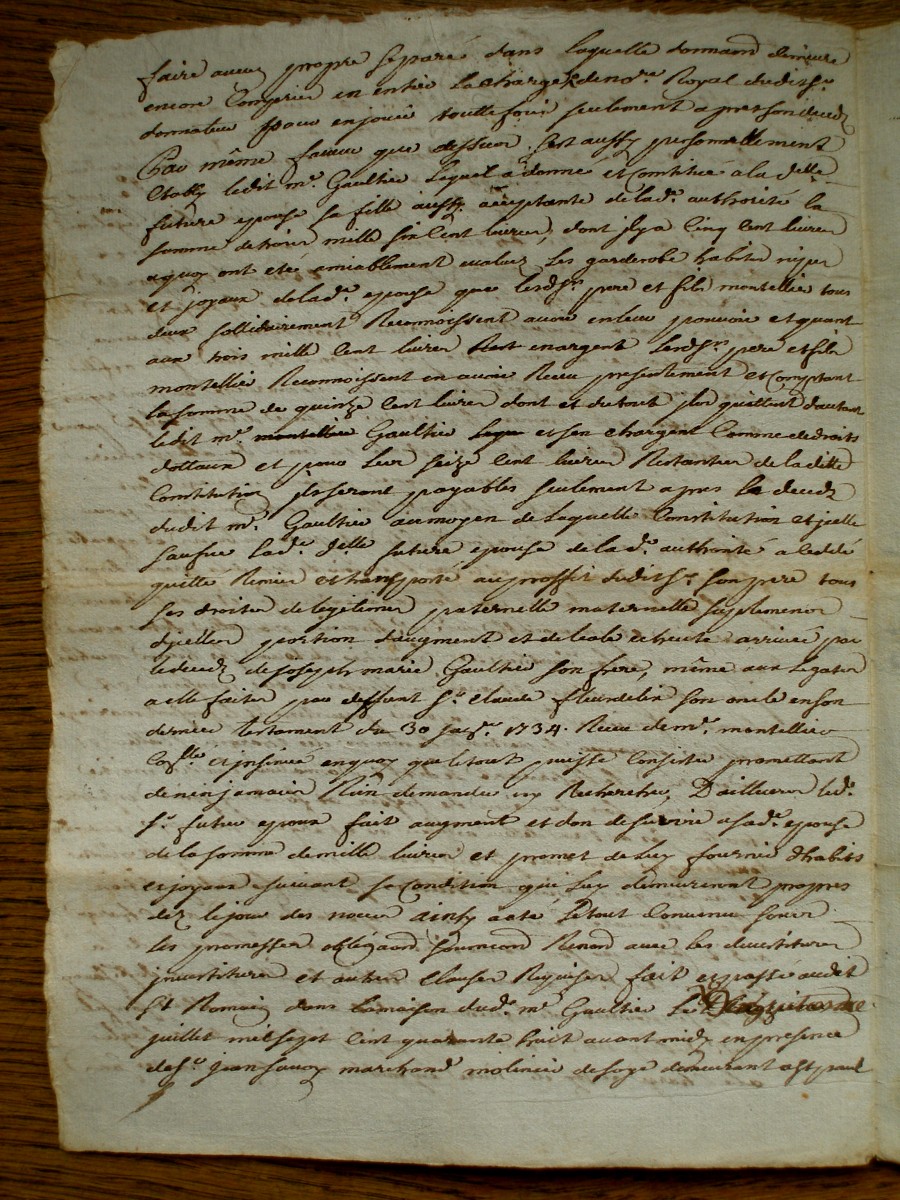 faire aveu propre séparé dans laquelle donnaõn demeure
encore Comprise en entier la charge de no.re Royal dudit s.r
donnateur pour en jouir touttefois seulement apres son decez
Par même faveur que dessus. s'est aussy personnellement
Etably ledit m.r Gaultier Lequel a donné et Constitué a la d.elle
future epouse sa fille aussy acceptante de lad.e authorité la
somme de trois mille six Cent livres, dont il y a Cinq Cent livres
a quoy ont eté amiablement evalués les garderobe habits nipes
et joyaux de lad.e epouse que lesd. s.rs pere et fils montellier tous
deux sollidairement Reconnoissent avoir en leur pouvoir et quant
aux trois mille Cent livres Rest en argent Lesd. s.rs pere et fils
montellier Reconnoissent en avoir Receu presentement et Comptant
la somme de quinze Cent livres dont et du tout ils quittent d'autant
ledit m.r Gaultier et s'en chargent Comme de droits
dottaux et pour Les seize Cent livres Restantes de la ditte
Constitution ils seront payables seulement apres le decez
dudit m.r Gaultier au moyen de Laquelle Constitution et icelle
sauf lad.e d.elle future epouse de lad.e authorité a cedé
quitté Remis et transporté au proffit dudit s.r son pere tous
ses droits de legitimes paternelle maternelle supplements
d'icelles portion d'augment et de escheute arrivée par
le decez de Joseph marie Gaultier son frere, même aux Legats
a elle faits par deffunt s.r Claude fleurdelix son oncle en son
dernier testament du 30 1734. Receu de m.r montellier
et insinué en quoy que le tout puisse Consister promettant
de n'en jamais Rien demander ny Rechercher, D'ailleurs led.
s.r futur epoux fait augment et don de survie a sad.e epouse
de la somme de mille livres et promet de Luy fournir d'habits
et joyaux suivant sa Condition qui Luy demeureront propres
dez le jour des noces ainsy a eté Le tout Convenu sous
les promesses obligaõns soumissions Renonõns avec les devestitures
investitures et autres Clauses Requises fait et passé audit
st Romain dans la maison dud. m.r Gaultier Le de
juillet mil sept Cent quarante huit avant midy en presence
de s.r jean savoy marchand molinier de soye demeurant a st paul